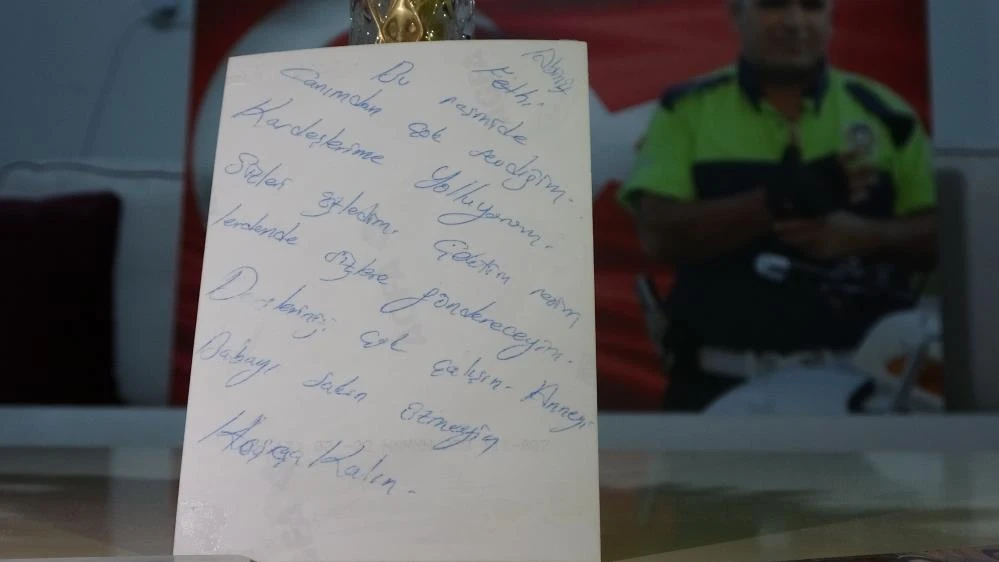 Abiniz
Fethi.
Bu resmide
Canımdan çok sevdiğim.
Kardeşlerime Yolluyorum.
Sizleri özledim. Çektim resim
lerdende sizlere göndereceğim.
Derslerinizi çok çalışın. Anneyi
Babayı sakın üzmeyin
Hoşça Kalın.